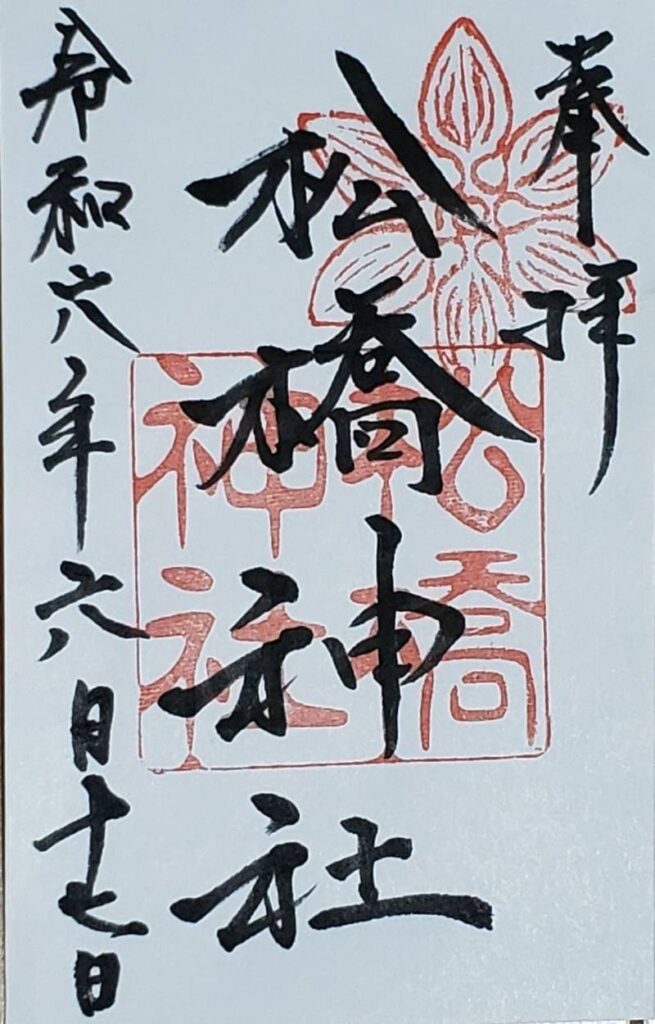 奉拝
松橋神社
松橋
神社
令和六年六月十七日